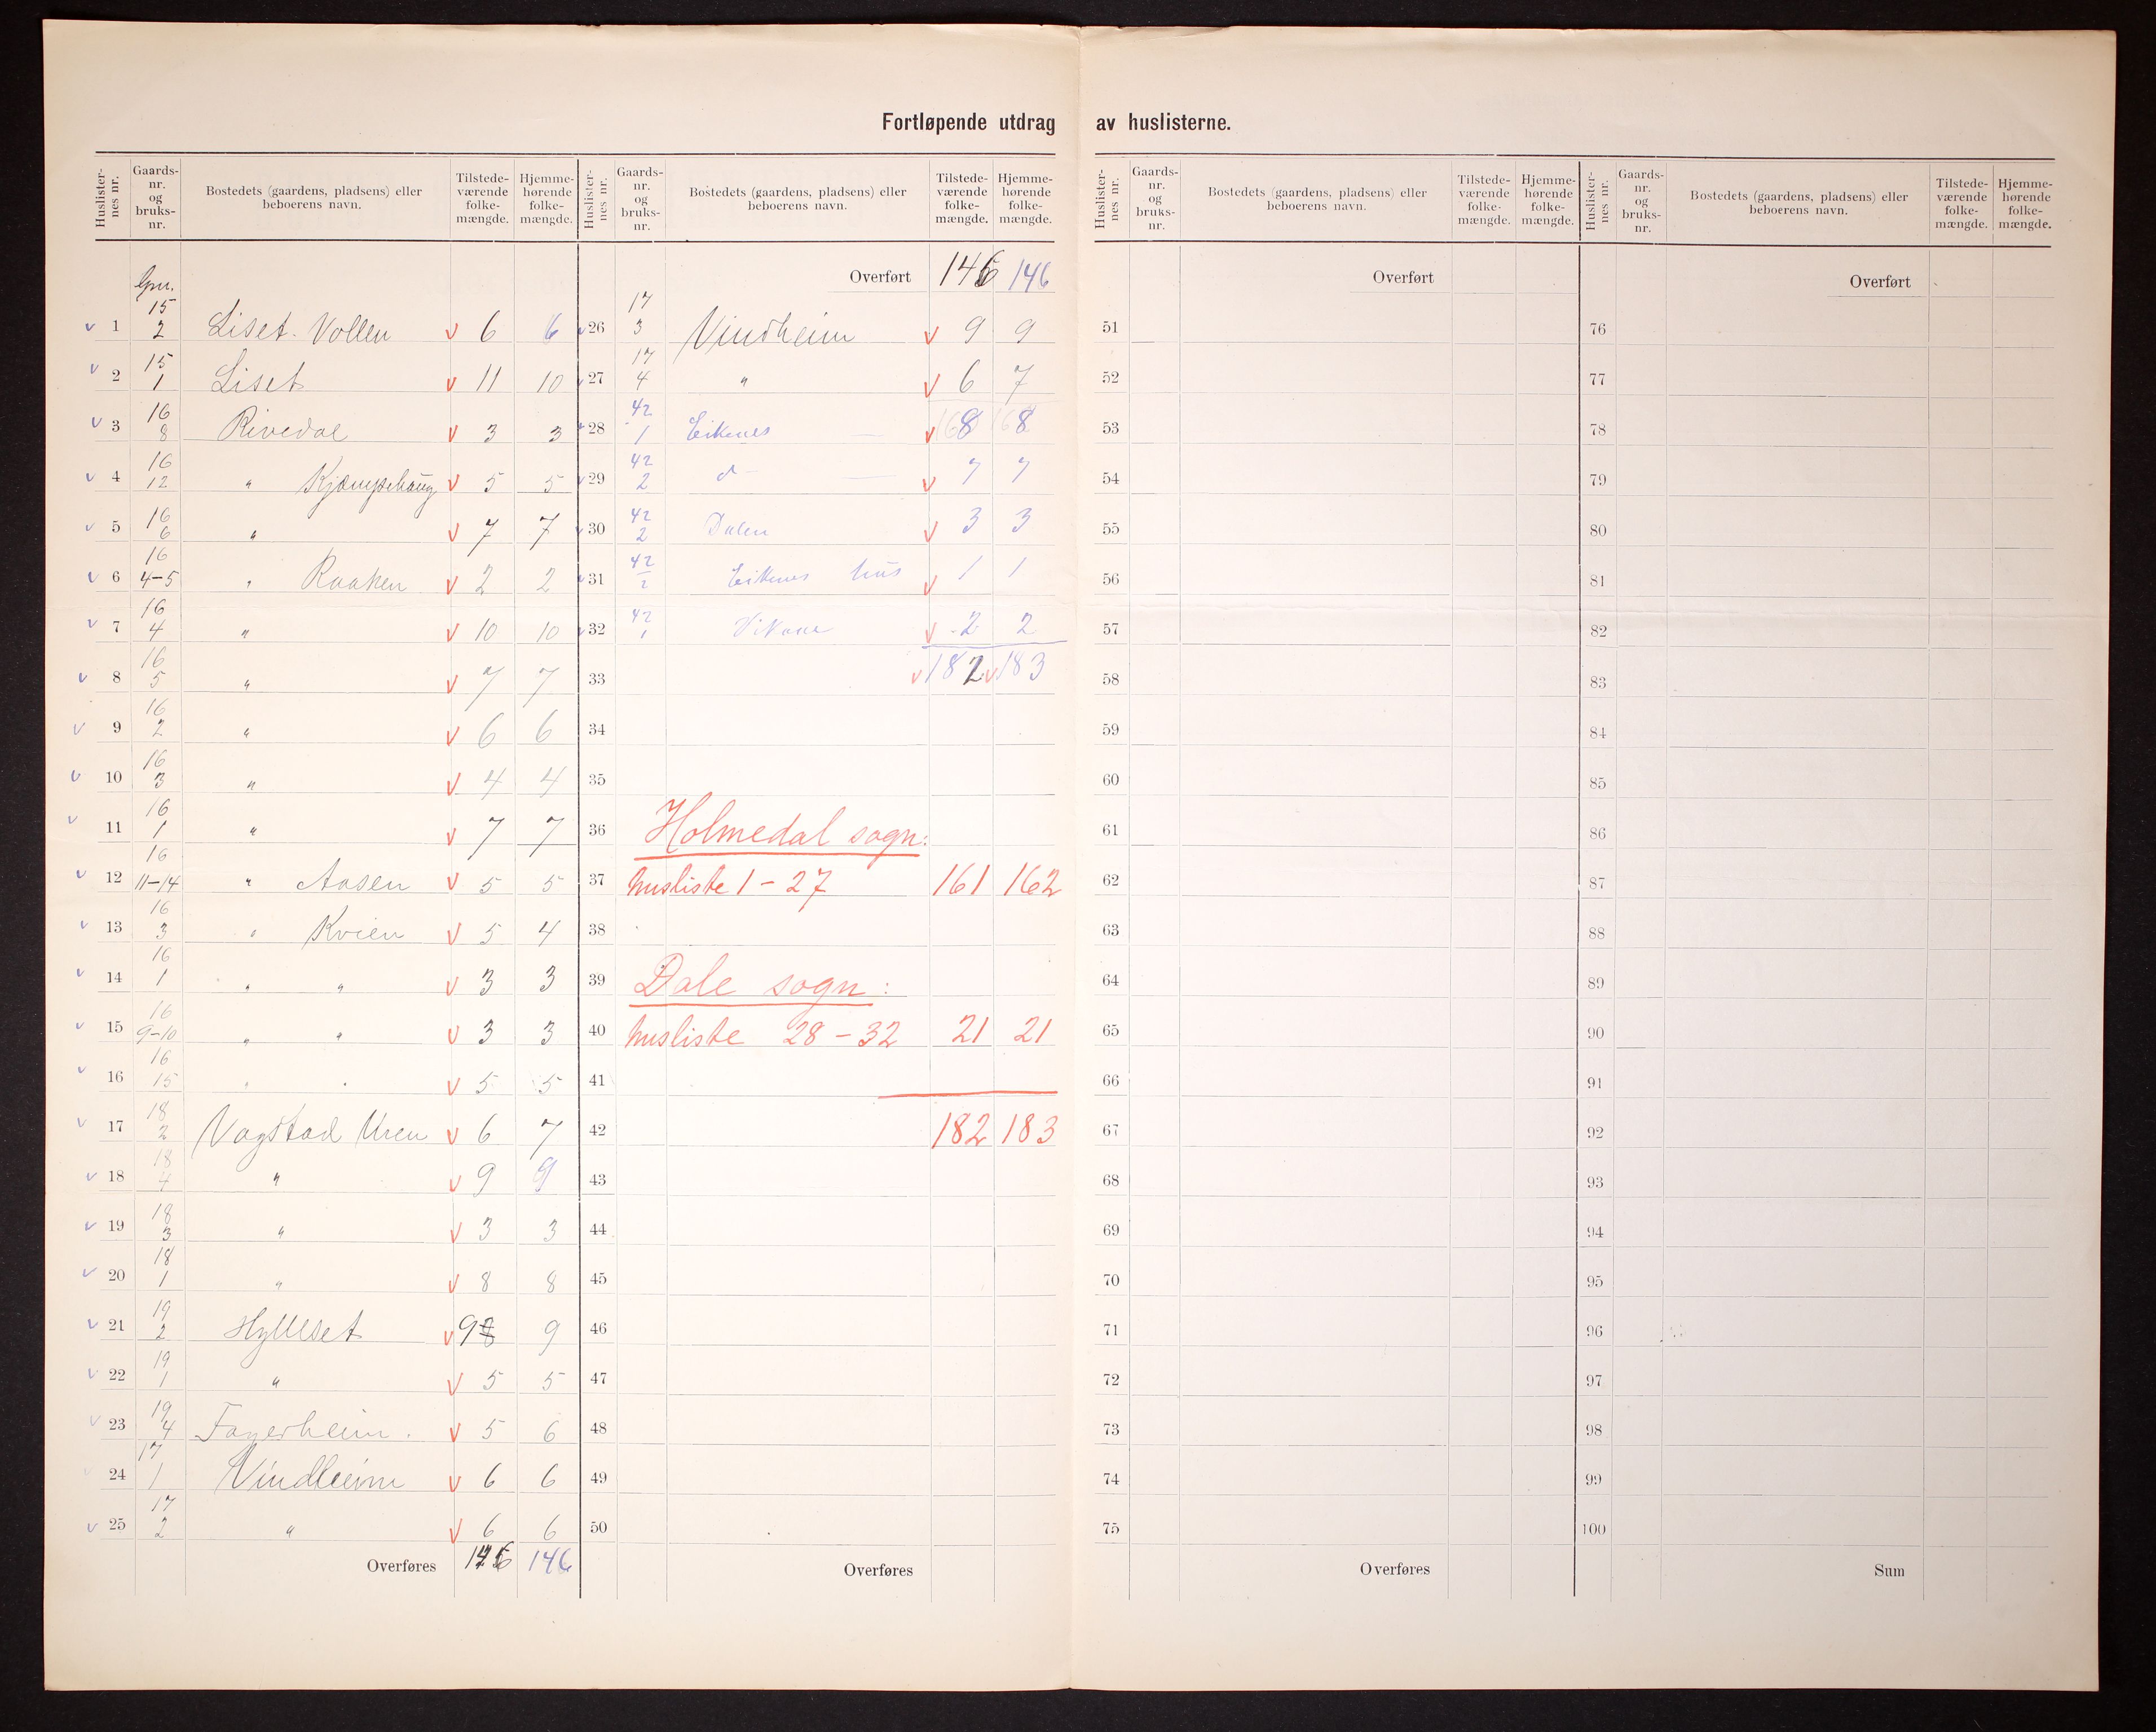 Fortløpende utdrag av huslisterne.
Huslisternes nr. Gaards-nr. og bruks-nr. Bostedets (gaardens, pladsens) eller beboerens navn. Tilstede-værende folke-mængde. Hjemme-hørende folke-mængde.
Gnr.
1 15 2 Liset. Vollen 6 6
2 15 1 Liset 11 10
3 16 8 Rivedal 3 3
4 16 12 " Kjæmpehaug 5 5
5 16 6 " 7 7
6 16 4-5 " Raaken 2 2
7 16 4 " 10 10
8 16 5 " 7 7
9 16 2 " 6 6
10 16 3 " 4 4
11 16 1 " 7 7
12 16 11-14 " Aasen 5 5
13 16 3 " Kvien 5 4
14 16 1 " " 3 3
15 16 9-10 " " 3 3
16 16 15 " " 5 5
17 18 2 Vagstad Uren 6 7
18 18 4 " 9 9
19 18 3 " 3 3
20 18 1 " 8 8
21 19 2 Hylleset 9 8 9
22 19 1 " 5 5
23 19 4 Fagerheim. 5 6
24 17 1 Vindheim 6 6
25 17 2 " 6 6
Overføres 146 146
Huslisternes nr. Gaards-nr. og bruks-nr. Bostedets (gaardens, pladsens) eller beboerens navn. Tilstede-værende folke-mængde. Hjemme-hørende folke-mængde.
Overført 146 146
26 17 3 Vindheim 9 9
27 17 4 " 6 7
28 42 1 Eikenes 8 8
29 42 2 d- 7 7
30 42 2 Dalen 3 3
31 42 2 Eikenes hus 1 1
32 42 1 2 2
33 182 183
34
35
36 Holmedal sogn:
37 husliste 1-27 161 162
38
39 Dale sogn:
40 husliste 28-32 21 21
41
42 182 183
43
44
45
46
47
48
49
50
Overføres
Huslisternes nr. Gaards-nr. og bruks-nr. Bostedets (gaardens, pladsens) eller beboerens navn. Tilstede-værende folke-mængde. Hjemme-hørende folke-mængde.
Overført
51
52
53
54
55
56
57
58
59
60
61
62
63
64
65
66
67
68
69
70
71
72
73
74
75
Overføres
Huslisternes nr. Gaards-nr. og bruks-nr. Bostedets (gaardens, pladsens) eller beboerens navn. Tilstede-værende folke-mængde. Hjemme-hørende folke-mængde.
Overført
76
77
78
79
80
81
82
83
84
85
86
87
88
89
90
91
92
93
94
95
96
97
98
99
100
Sum